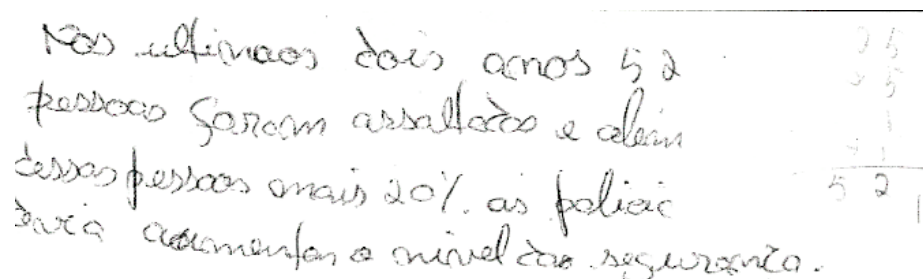 Nos ultimaos dois anos 52
pessoas foram assaltados e alem
dessas pessoas mais 20% as policia
daria aumentar o nivel da segurança.
25
25
1
+1
52